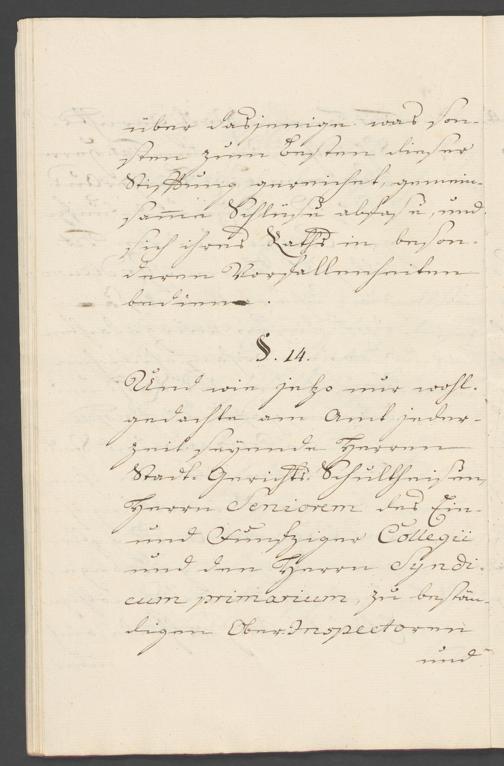 über dasjenige was son-
sten zum besten dieser
Stifftung gereichet, gemein-
same Schlüße abfaße, und
sich ihres Raths in beson-
deren Vorfallenheiten
bediene.
§. 14.
Und wie jetzo nur wohl-
gedachte am Amt jeder-
zeit seyende Herren
Stadt-Gerichts-Schultheisen,
Herrn Seniorem des Ein-
und Funfziger Collegii
und den Herrn Syndi-
cum primarium, zu bestän-
digen Ober-Inspectoren
und